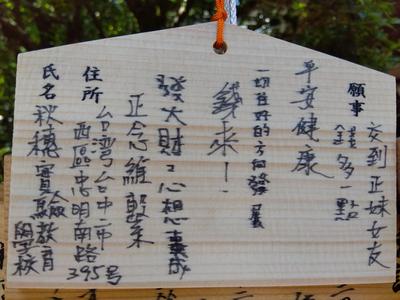 願事 交到正妹女友
錢多一點
平安健康
一切往好的方向發展
錢來！
發大財！心想事成
正念維繫
住所 台灣台中市
西區忠明南路
395号
氏名 秋穗實驗教育
學校